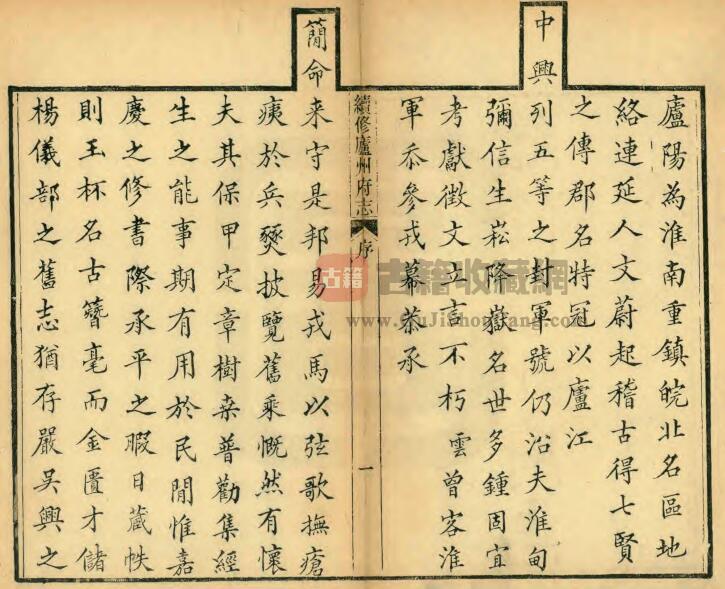 廬陽為淮南重鎮皖北名區地
絡連延人文蔚起稽古得七賢
之傳郡名特冠以廬江
中興
列五等之封軍號仍沿夫淮甸
彌信生崧降嶽名世多鍾固宜
考獻徵文立言不朽雲曾客淮
軍忝參戎幕恭承
續修廬州府志
序
一
簡命
来守是邦易戎馬以弦歌撫瘡
痍於兵燹披覽舊乘慨然有懷
夫其保甲定章樹桒普勸集經
生之能事期有用於民間惟嘉
慶之修書際承平之暇日蔵帙
則玉杯名古簪毫而金匱才儲
楊儀部之舊志猶存嚴吳興之
古籍
古籍收藏網
www.GuJiShouCang.com